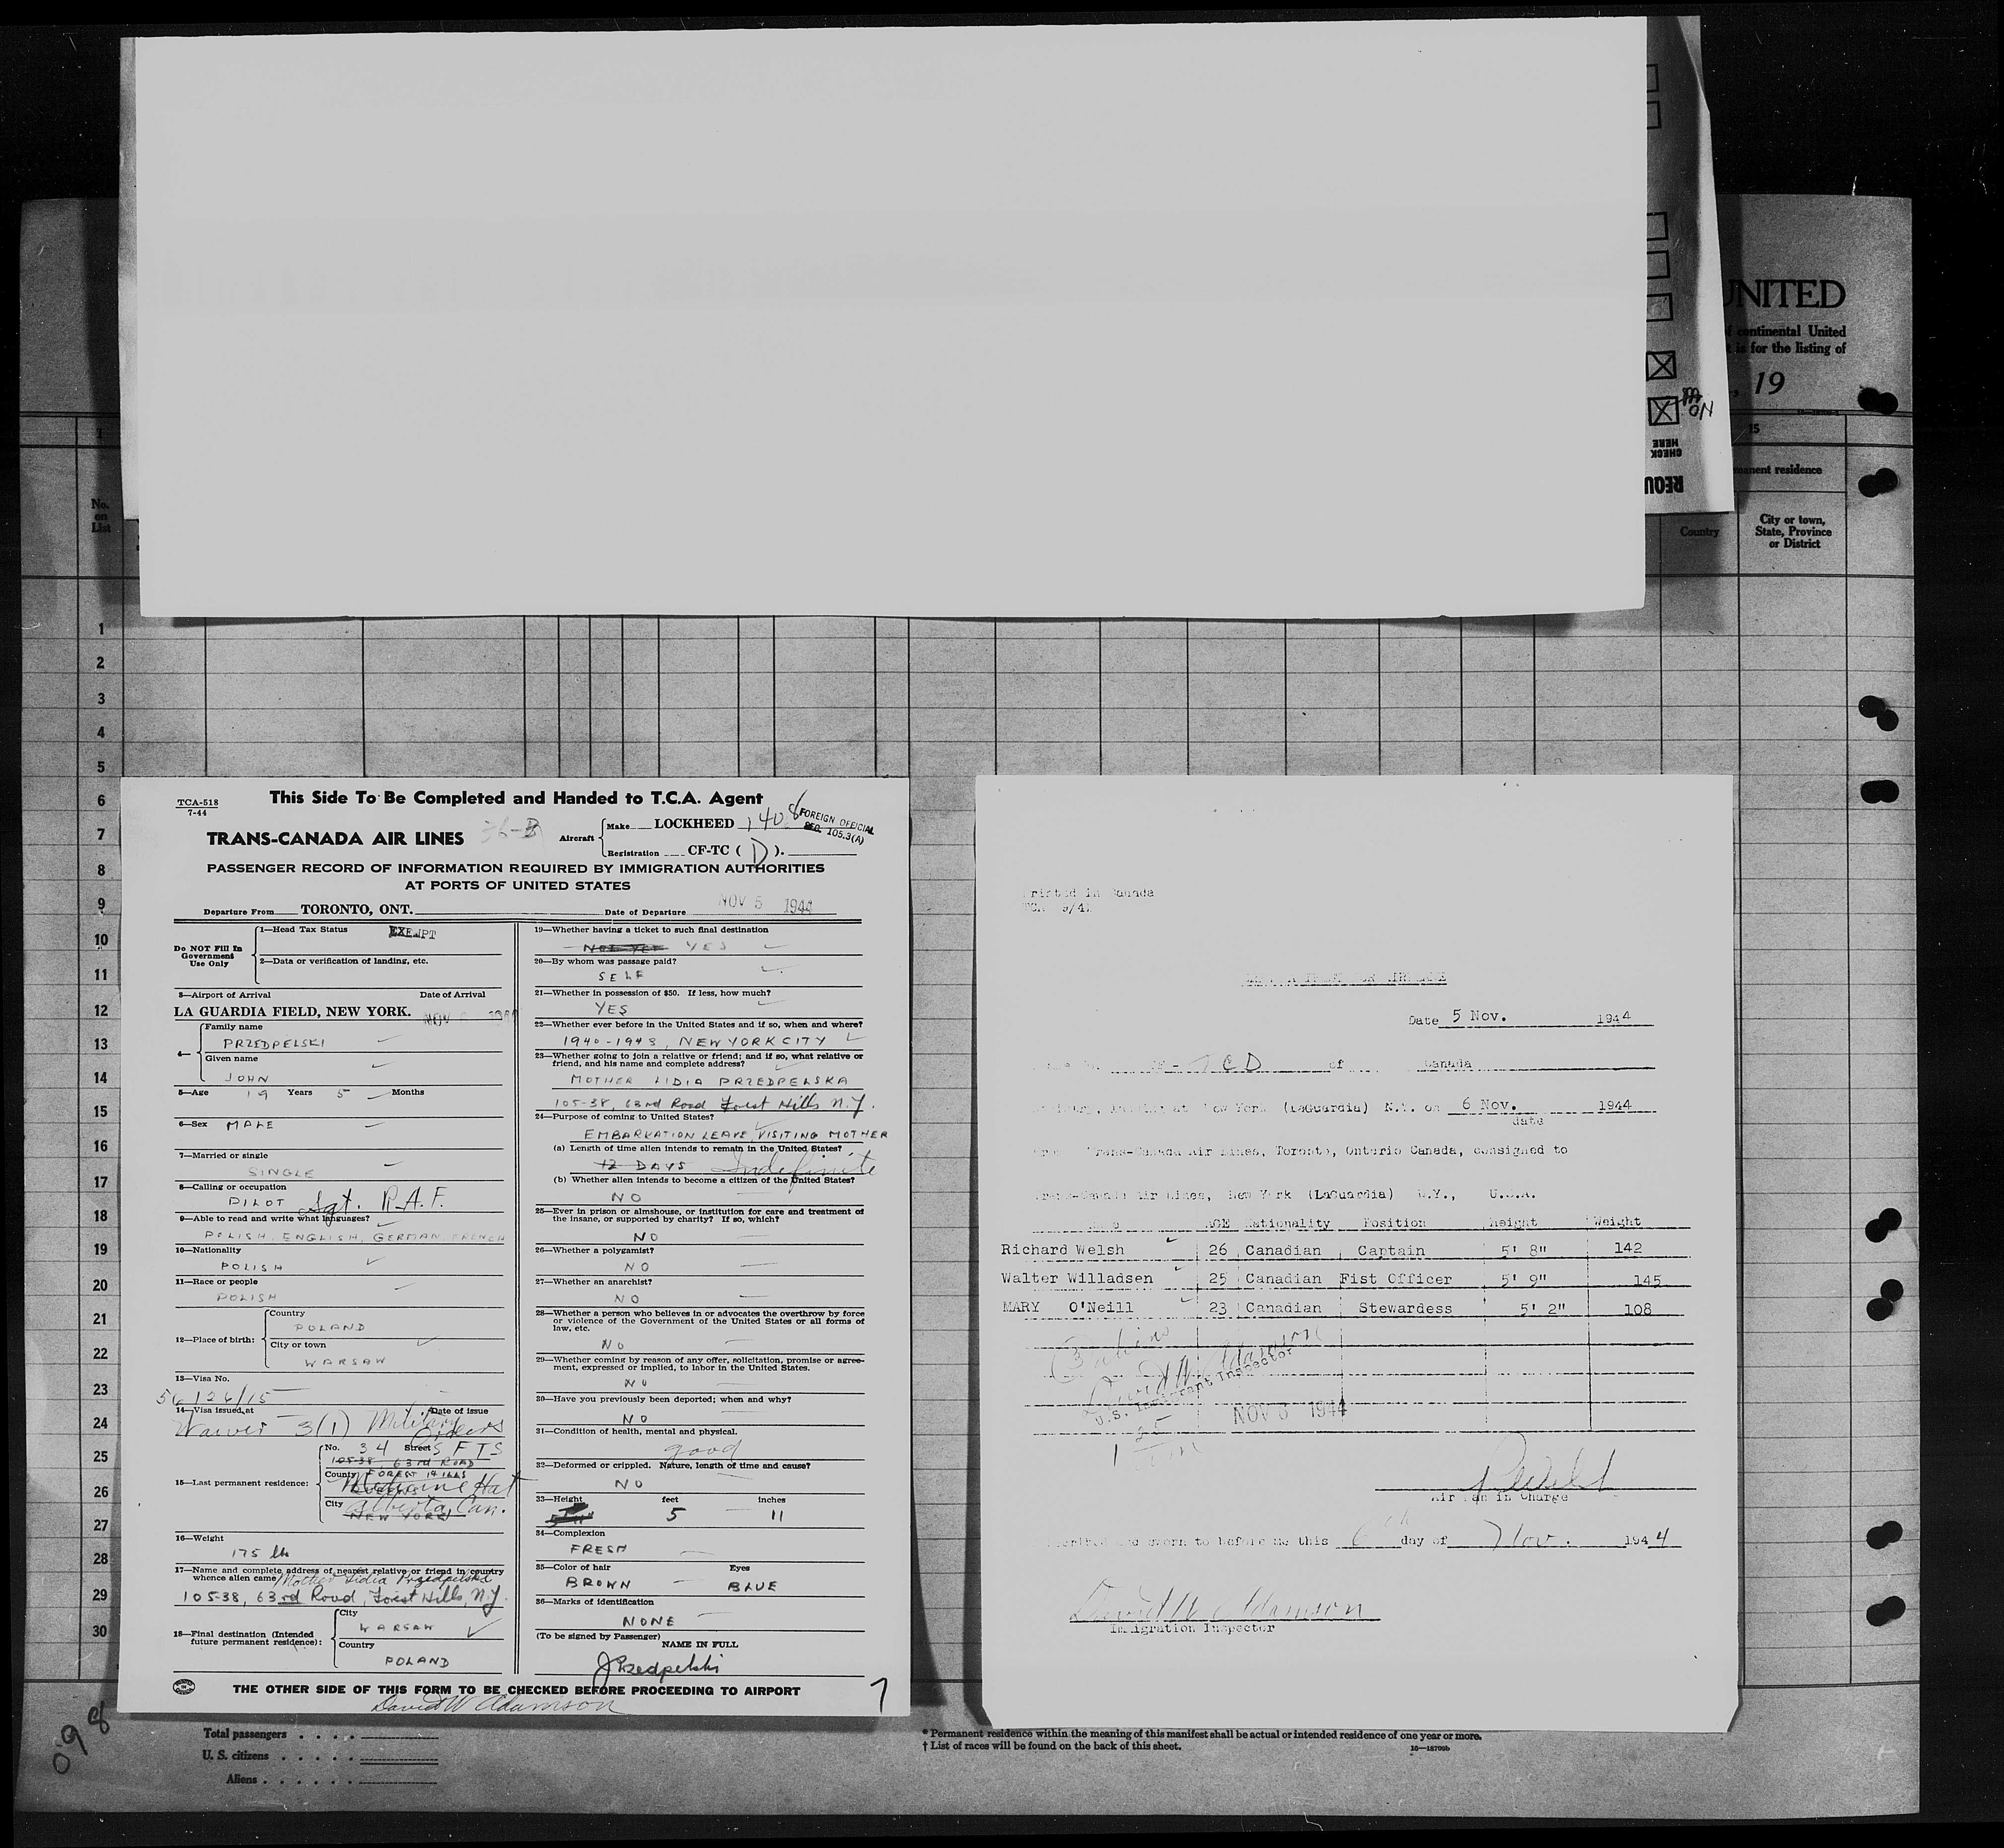 UNITED
of continental United
it is for the listing of
, 19
ON
CHECK
HERE
REQU
1
15
manent residence
No.
on
List
Country
City or town,
State, Province
or District
1
2
3
4
5
6
7
8
9
10
11
12
13
14
15
16
17
18
19
20
21
22
23
24
25
26
27
28
29
30
TCA-518
7-44
This Side To Be Completed and Handed to T.C.A. Agent
TRANS-CANADA AIR LINES
Aircraft
Make LOCKHEED 1408
FOREIGN OFFICIAL
REG. 105.3(A)
Registration CF-TC ( D ).
PASSENGER RECORD OF INFORMATION REQUIRED BY IMMIGRATION AUTHORITIES
AT PORTS OF UNITED STATES
Departure From TORONTO, ONT. Date of Departure NOV 5 1944
Do NOT Fill In
Government
Use Only
1—Head Tax Status EXEMPT
2—Data or verification of landing, etc.
3—Airport of Arrival Date of Arrival
LA GUARDIA FIELD, NEW YORK. NOV
4—
Family name
PRZEDPELSKI
Given name
JOHN
5—Age 19 Years 5 Months
6—Sex MALE
7—Married or single
SINGLE
8—Calling or occupation
PILOT Sgt. R.A.F.
9—Able to read and write what languages?
POLISH, ENGLISH, GERMAN, FRENCH
10—Nationality
POLISH
11—Race or people
POLISH
12—Place of birth:
Country
POLAND
City or town
WARSAW
13—Visa No.
56126/15
14—Visa issued at Date of issue
Waiver 3(1) Military Orders
15—Last permanent residence:
No. 34 Street S F T S
105-38, 63rd ROAD
County FOREST HILLS
Medicine Hat
QUEENS
City Alberta, Can.
NEW YORK
16—Weight
175 lb
17—Name and complete address of nearest relative or friend in country
whence alien came Mother Lidia Przedpelska
105-38, 63rd Road, Forest Hills, N.Y.
18—Final destination (Intended
future permanent residence):
City
WARSAW
Country
POLAND
19—Whether having a ticket to such final destination
NOT YET YES
20—By whom was passage paid?
SELF
21—Whether in possession of $50. If less, how much?
YES
22—Whether ever before in the United States and if so, when and where?
1940-1943, NEW YORK CITY
23—Whether going to join a relative or friend; and if so, what relative or
friend, and his name and complete address?
MOTHER LIDIA PRZEDPELSKA
105-38, 63rd Road Forest Hills N.Y.
24—Purpose of coming to United States?
EMBARKATION LEAVE, VISITING MOTHER
(a) Length of time alien intends to remain in the United States?
12 DAYS Indefinite
(b) Whether alien intends to become a citizen of the United States?
NO
25—Ever in prison or almshouse, or institution for care and treatment of
the insane, or supported by charity? If so, which?
NO
26—Whether a polygamist?
NO
27—Whether an anarchist?
NO
28—Whether a person who believes in or advocates the overthrow by force
or violence of the Government of the United States or all forms of
law, etc.
NO
29—Whether coming by reason of any offer, solicitation, promise or agree-
ment, expressed or implied, to labor in the United States.
NO
30—Have you previously been deported; when and why?
NO
31—Condition of health, mental and physical.
good
32—Deformed or crippled. Nature, length of time and cause?
NO
33—Height feet inches
5 11
34—Complexion
FRESH
35—Color of hair Eyes
BROWN BLUE
36—Marks of identification
NONE
(To be signed by Passenger) NAME IN FULL
J Przedpelski
THE OTHER SIDE OF THIS FORM TO BE CHECKED BEFORE PROCEEDING TO AIRPORT
David W Adamson
7
Printed in Canada
Date 5 Nov. 1944
CF- TCD of Canada
at New York (LaGuardia) N.Y. on 6 Nov. 1944
date
Trans-Canada Air Lines, Toronto, Ontario Canada, consigned to
Trans-Canada Air Lines, New York (LaGuardia) N.Y., U.S.A.
Name AGE Nationality Position Height Weight
Richard Welsh 26 Canadian Captain 5' 8" 142
Walter Willadsen 25 Canadian Fist Officer 5' 9" 145
MARY O'Neill 23 Canadian Stewardess 5' 2" 108
David W Adamson
U.S. Immigrant Inspector
NOV 6 1944
R Welsh
Airman in Charge
Subscribed and sworn to before me this 6th day of Nov. 1944
David W Adamson
Immigration Inspector
098
Total passengers . . . .
U. S. citizens . . . . .
Aliens . . . . . .
* Permanent residence within the meaning of this manifest shall be actual or intended residence of one year or more.
† List of races will be found on the back of this sheet.
16—18708b